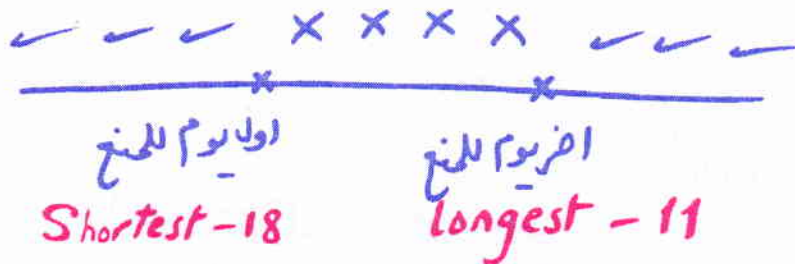 ✓ ✓ ✓ × × × × ✓ ✓ ✓
اول يوم للمنع اخر يوم للمنع
Shortest - 18 longest - 11